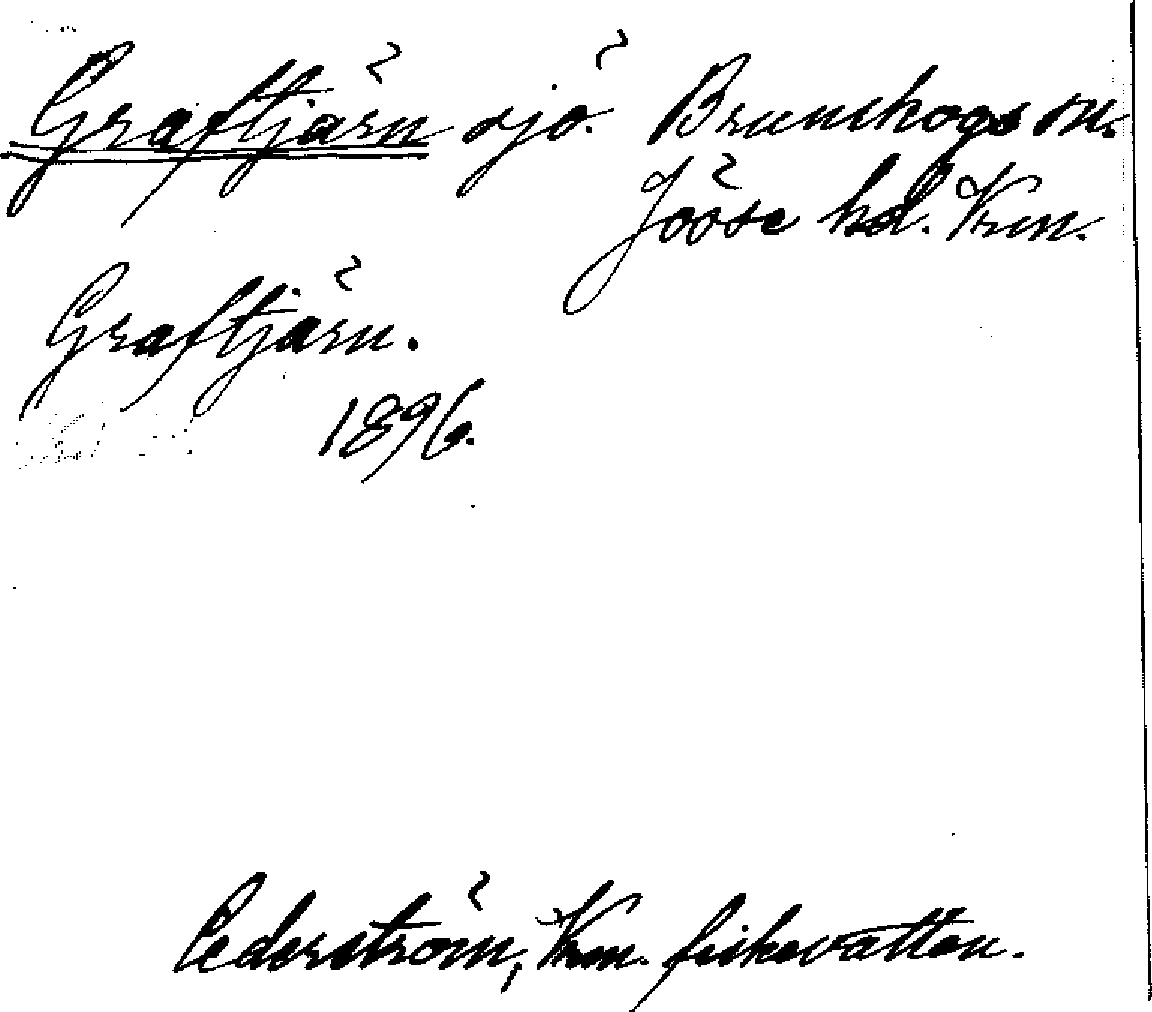 Graftjärn sjö. Brunskogs sn.
Jösse hd. Vrm.
Graftjärn.
1896.
Cederström, Vrm. fiskevatten.